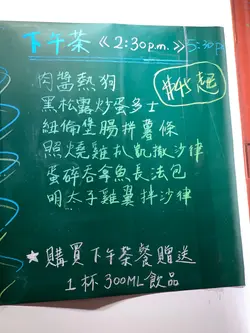 下午茶 《2:30p.m.》5:30p
肉醬熱狗
黑松露炒蛋多士
紐倫堡腸拼薯條
照燒雞扒凱撒沙律
蛋碎吞拿魚長法包
明太子雞翼拌沙律
★ 購買下午茶餐贈送
1杯 300ML飲品